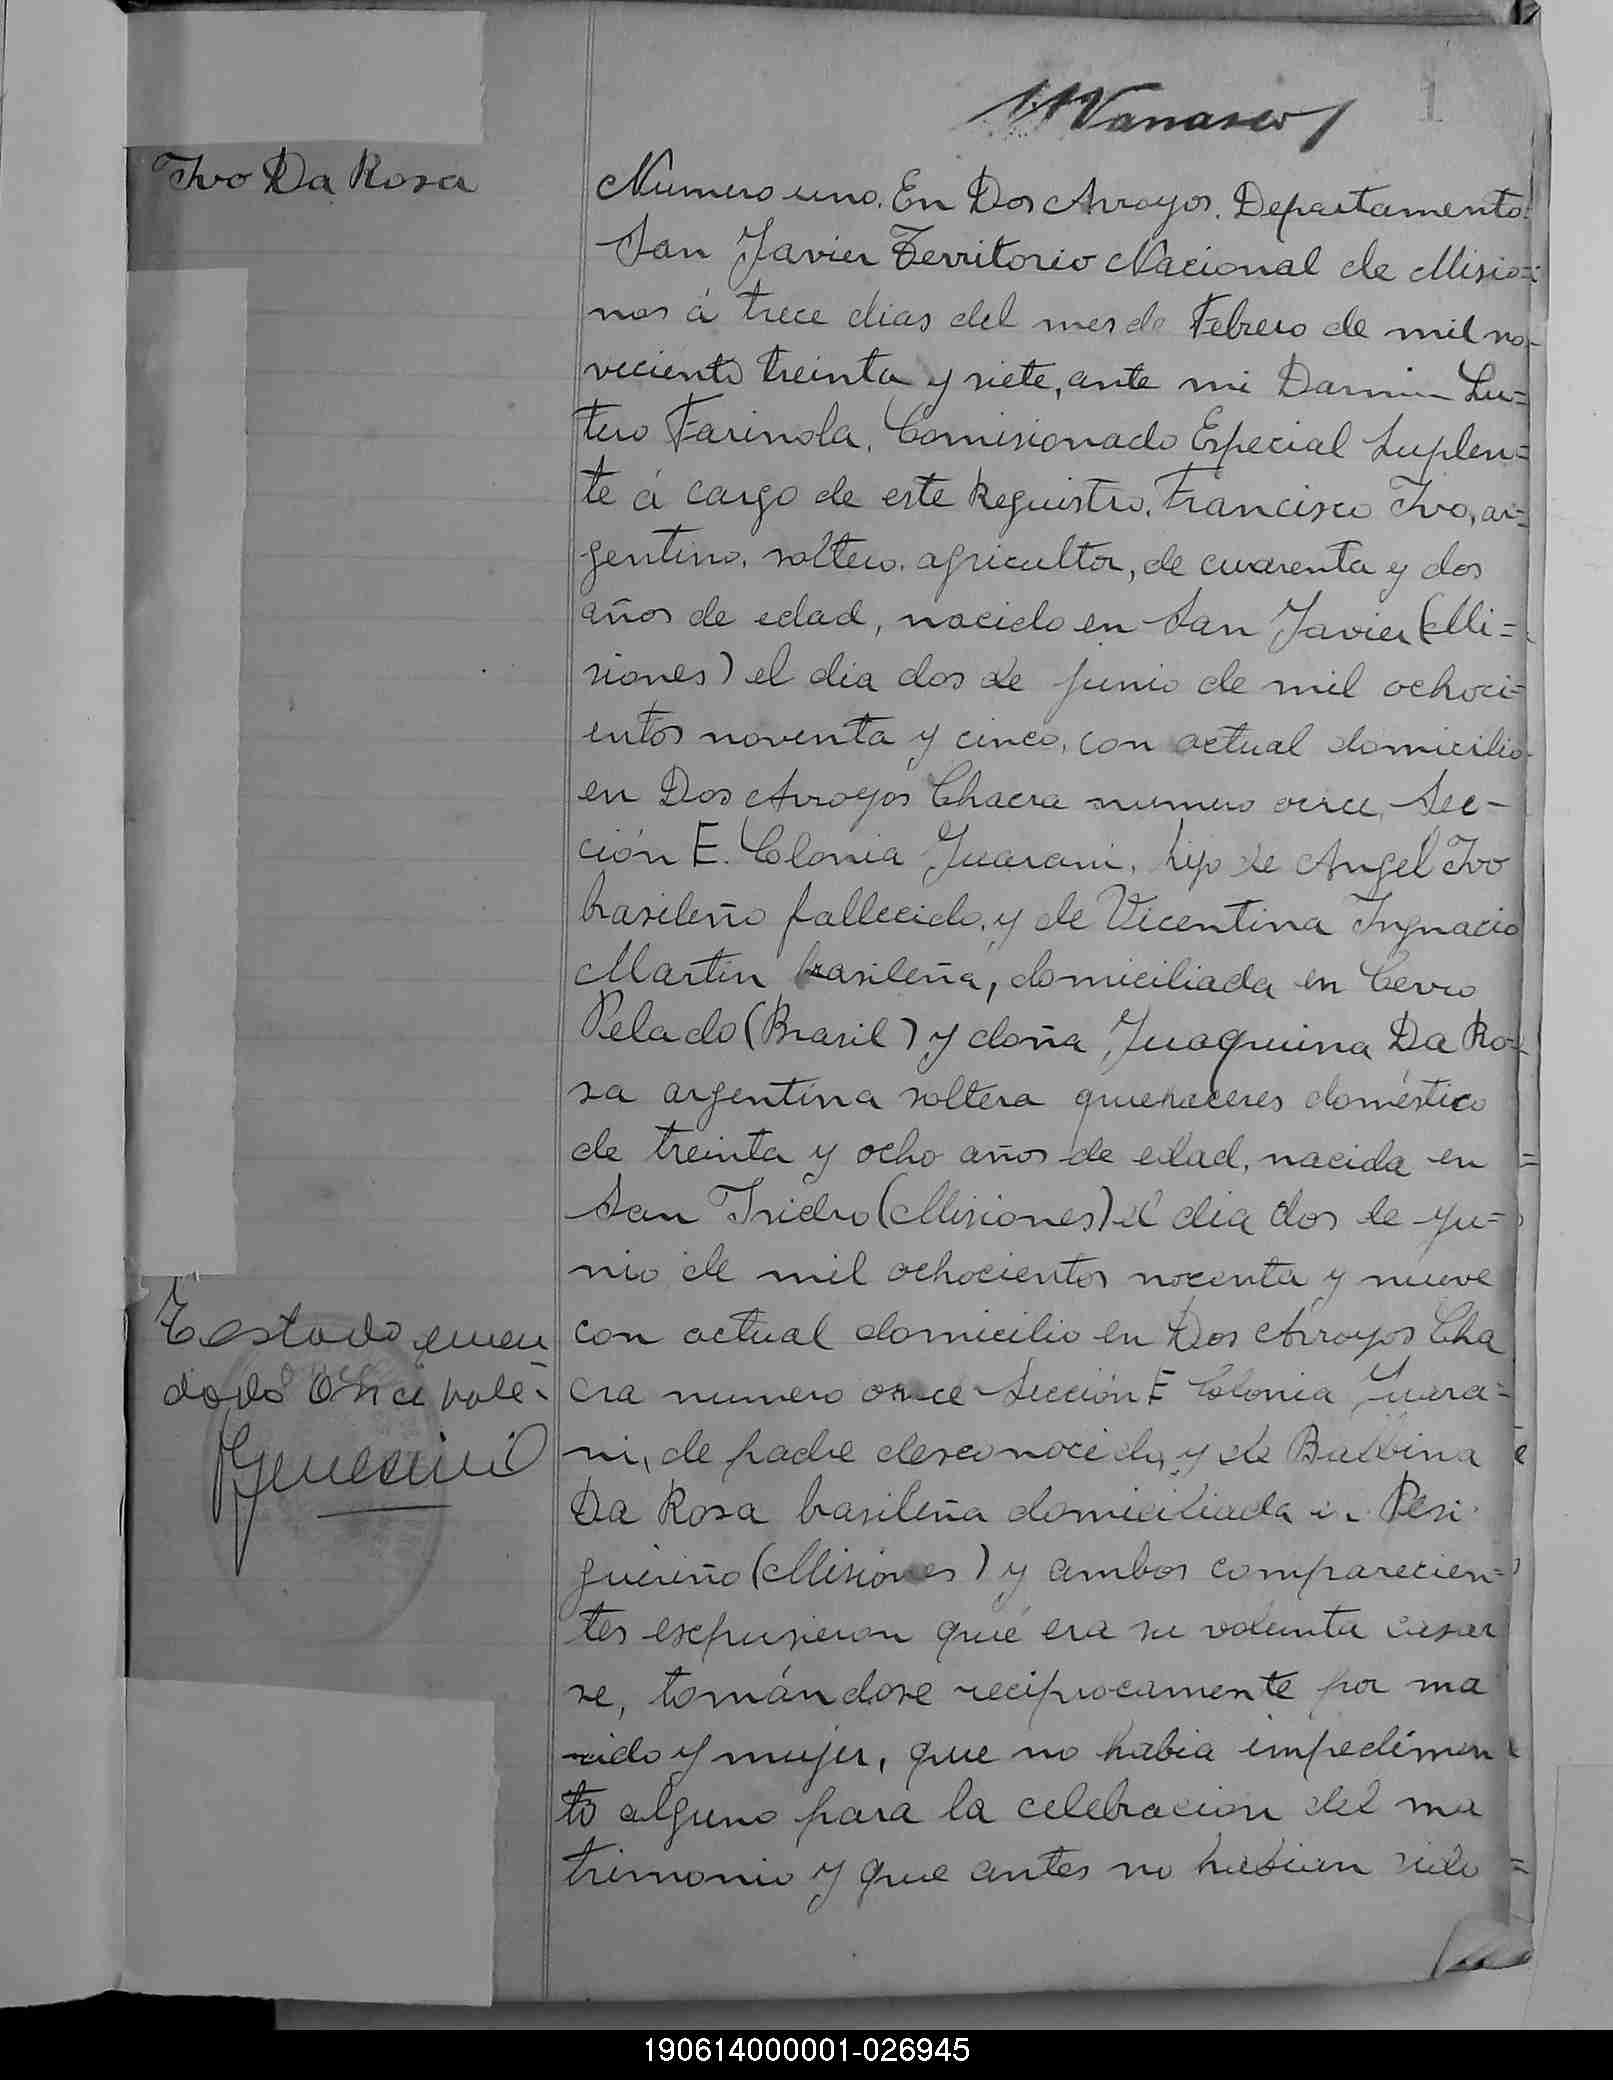 1
Ivo Da Rosa
Numero uno. En Dos Arroyos. Departamento
San Javier Territorio Nacional de Misio=
nes á trece dias del mes de Febrero de mil no-
veciento treinta y siete, ante mi Darwin Lu=
tero Farinola, Comisionado Especial Suplen=
te á cargo de este Reguistro. Francisco Ivo, ar=
gentino, soltero, agricultor, de cuarenta y dos
años de edad, nacido en San Javier (Mi=
siones) el dia dos de junio de mil ochoci=
entos noventa y cinco, con actual domicilio
en Dos Arroyos Chacra numero once, Sec-
ción E. Colonia Guarani, hijo de Angel Ivo
brasileño fallecido, y de Vicentina Ingnacio
Martin brasileña, domiciliada en Cerro
Pelado (Brasil) y doña Juaquina Da Ro=
sa argentina soltera quehaceres doméstico
de treinta y ocho años de edad, nacida en
San Isidro (Misiones) el dia dos de ju=
nio de mil ochocientos noventa y nueve
con actual domicilio en Dos Arroyos Cha
cra numero once Sección E Colonia Guara=
ni, de padre desconocido, y de Balbina
Da Rosa brasileña domiciliada en Pesi
guereño (Misiones) y ambos comparecien=
tes escpusieron que era su volunta casar
se, tomándose reciprocamente por ma
rido y mujer, que no habia impedimen
to alguno para la celebracion del ma
trimonio y que antes no habian sido
Testado emen
dado Once vale-
190614000001-026945